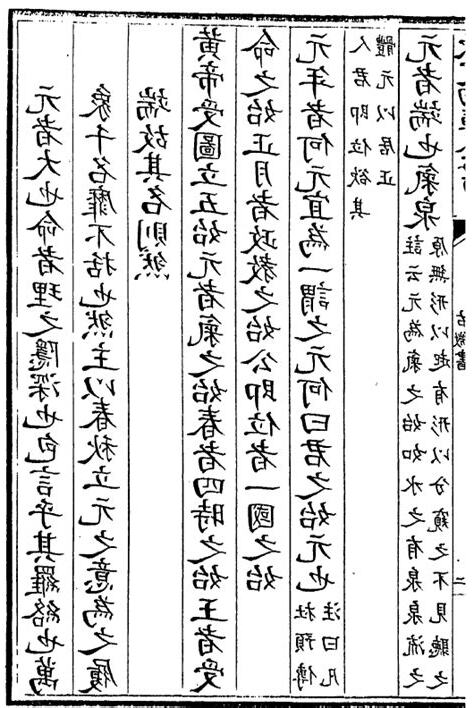 元者大也命者理之隱深也包言乎其羅絡也萬
象千名靡不括也然主以春秋立元之意為之履
端故其名則然
黃帝受圖立五始元者氣之始春者四時之始王者受
命之始正月者政教之始公即位者一國之始
元年者何元宜為一謂之元何曰君之始元也
杜預傳
注曰凡
人君即位欲其
體元以居正
元者端也氣泉
註云元為氣之始如水之有泉泉流之
原無形以起有形以分窺之不見聽之
古微書
二